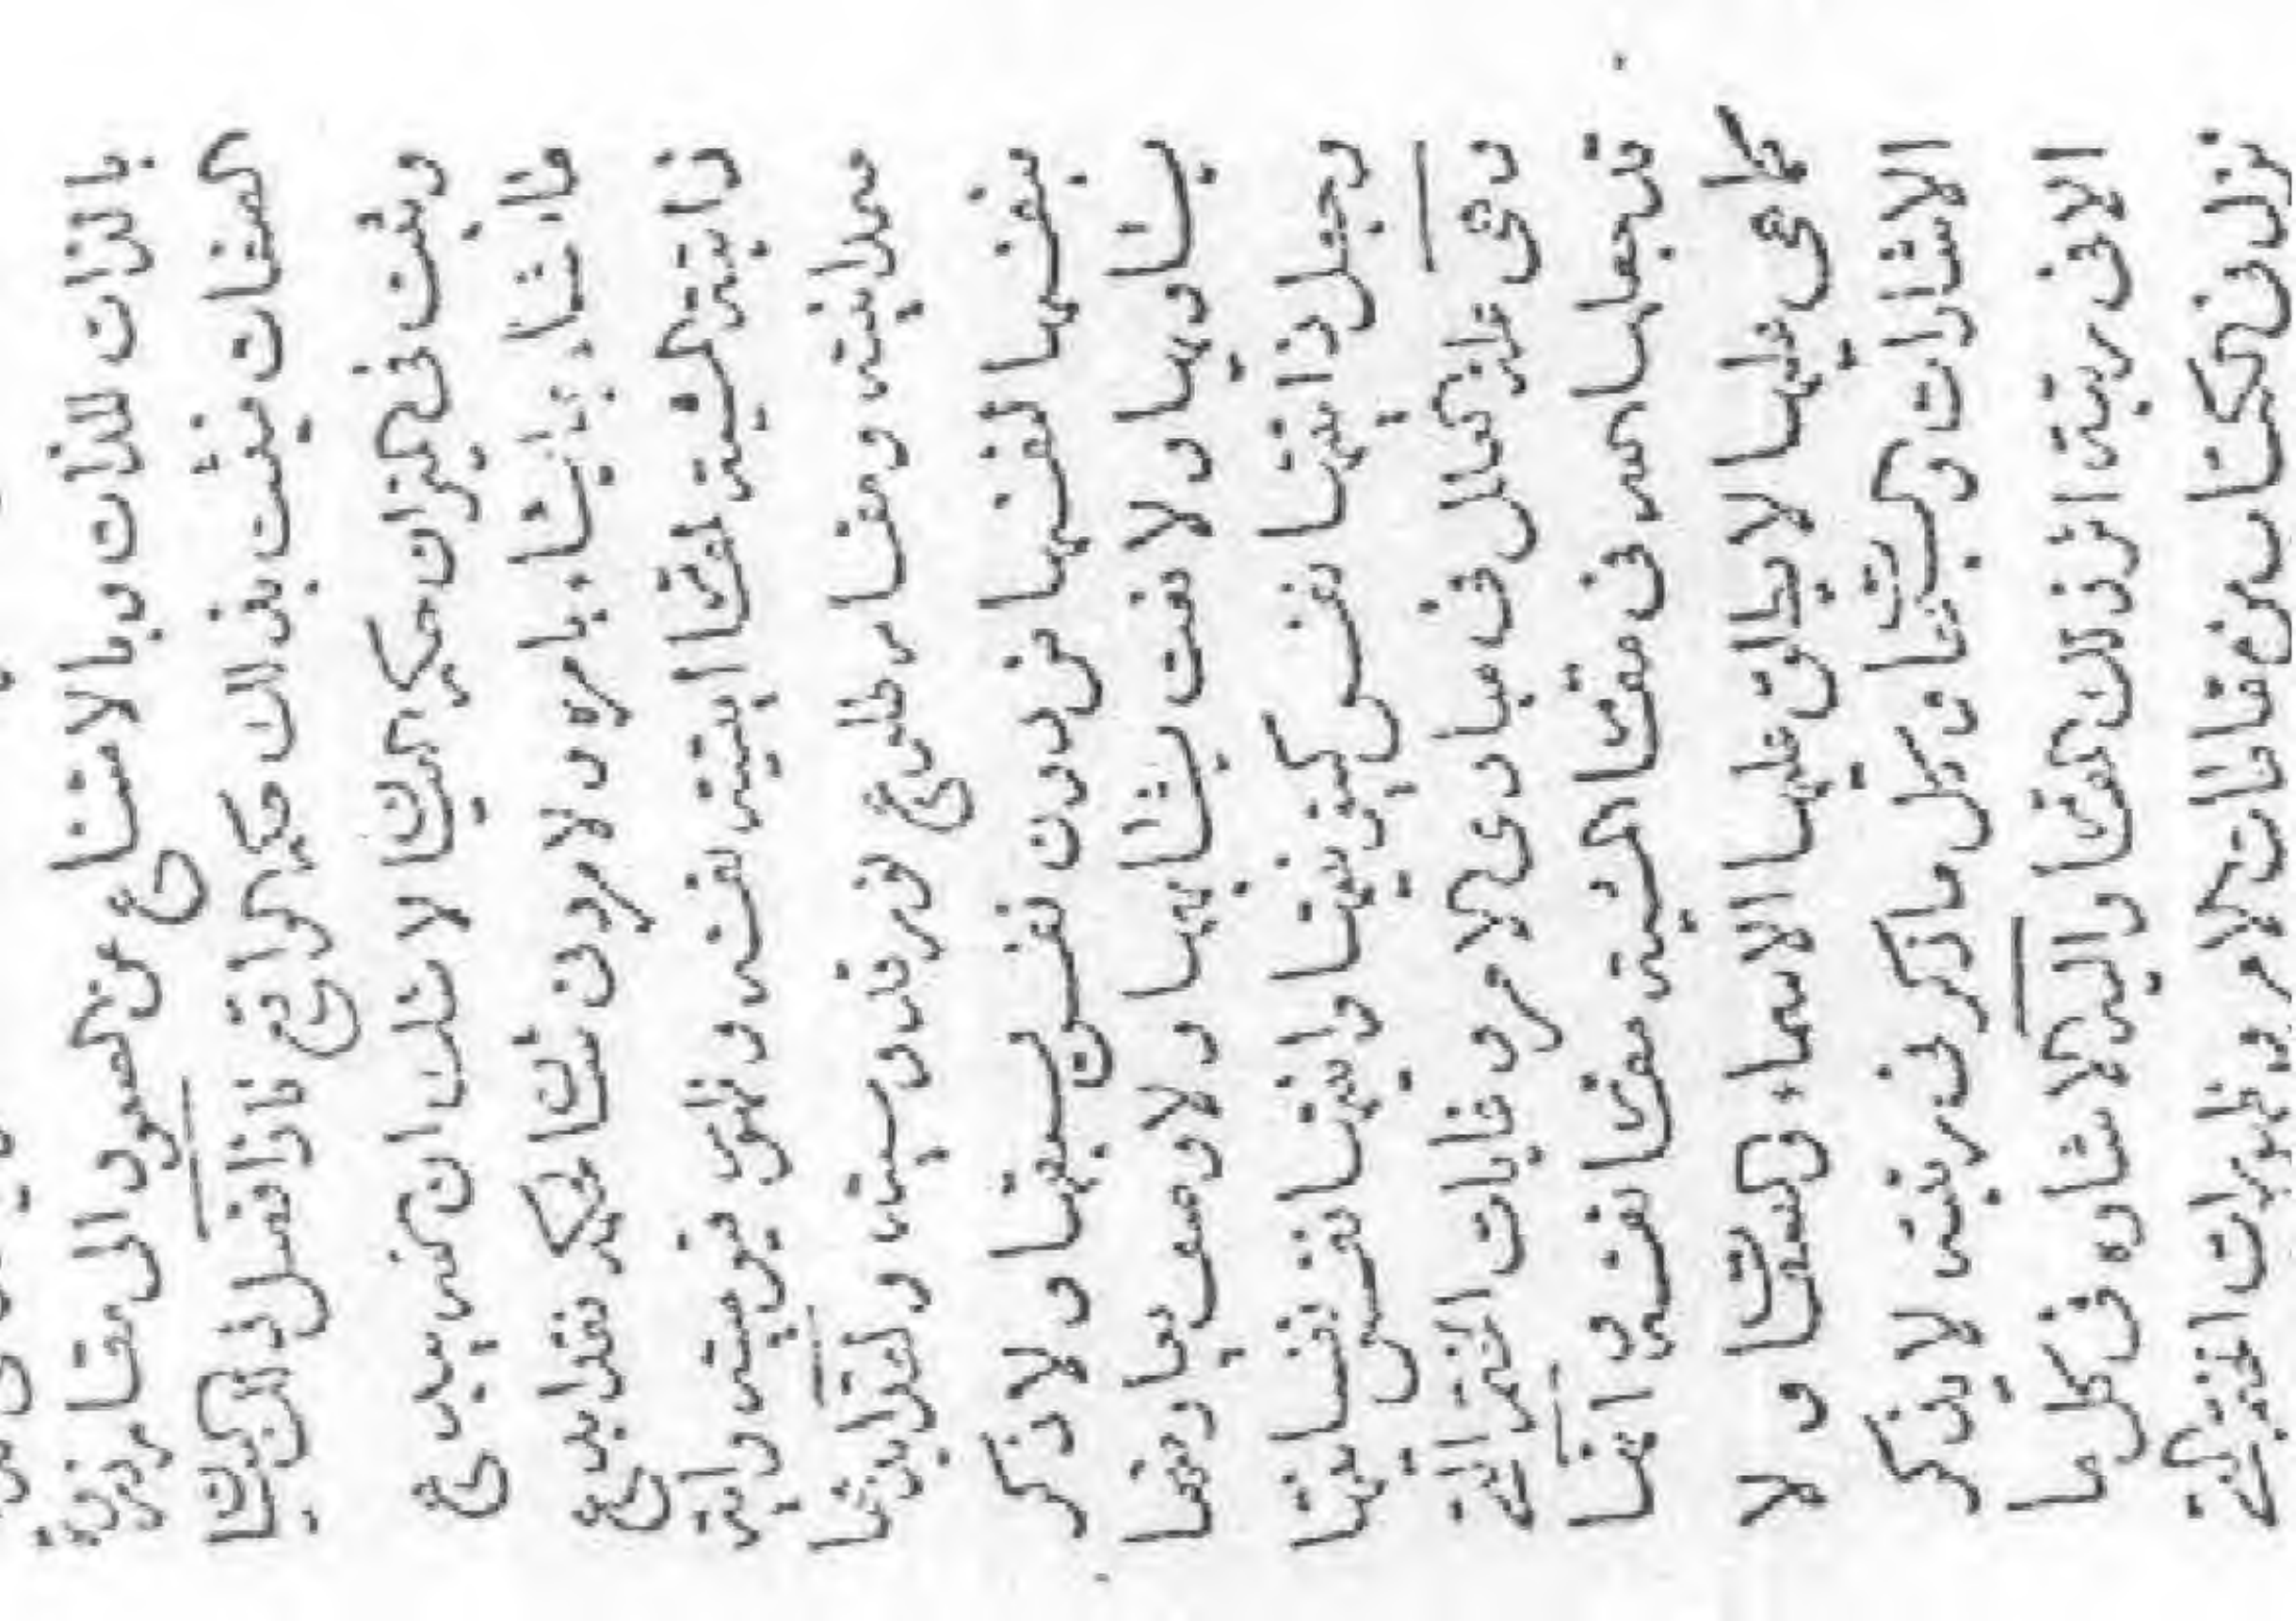 بالذات للذات و بالامتناع عن الصعود الى مقام
الصفات فيثبت بذلك حكم الواقع فاذا فصل لذلك البيا
و ثبت في الميزان حكم البيان لا شك ان الله يبدع
ما يشاء بما يشاء بامره و لا مرد من لقد ابدع
ذاتية المشية لمقام انيته نفسه و ظهور قيوميته و اية
صمدانيته و مقام طلوع نور قدوسيته و لقد ابدعها
بنفسها لنفسها من دون نفس يسبقها و لا ذكر
يساويها و لا نعت يشابهها و لا وصف
و جعل ذاتيتها نفس كينونيتها و انيتها نفس نفسانيتها
و هي علة العلل في مبادى الامر و غايات الختم التي
قد جعلها الله في مقام المشية مقام نفسه و انها
كما هي عليها لا يطلق عليها الاسماء و الصفات و لا
الاشارات و و كل ما ذكر في رتبته لا يذكر
الا في رتبة اثر ذلك المقام و اليه الاشاره في كل ما
نزل في الكتاب من مقامات الامر و ظهورات